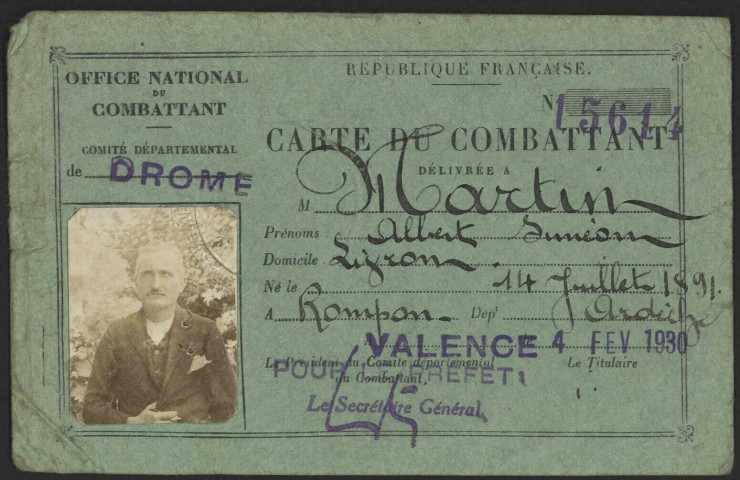 OFFICE NATIONAL
DU
COMBATTANT
COMITÉ DÉPARTEMENTAL
de DROME
REPUBLIQUE FRANÇAISE.
N 15614
CARTE DU COMBATTANT
DÉLIVRÉE A
M Martin
Prénoms Albert Siméon
Domicile
Né le 14 Juillet 1891.
A Rompon Dept Ardèche
A VALENCE le 4 FEV 1930
Le Président du Comité départemental
du Combattant,
Le Titulaire
POUR LE PREFET:
Le Secrétaire Général,